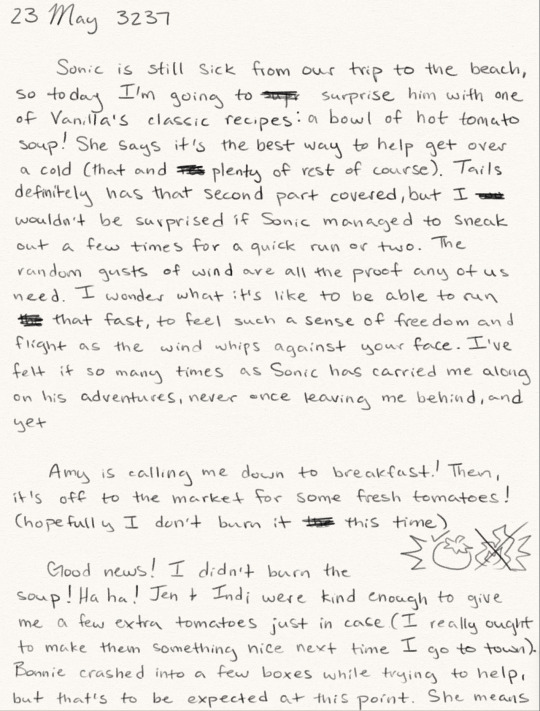 23 May 3237
Sonic is still sick from our trip to the beach,
so today I'm going to surprise him with one
of Vanilla's classic recipes: a bowl of hot tomato
soup! She says it's the best way to help get over
a cold (that and plenty of rest of course). Tails
definitely has that second part covered, but I
wouldn't be surprised if Sonic managed to sneak
out a few times for a quick run or two. The
random gusts of wind are all the proof any of us
need. I wonder what it's like to be able to run
that fast, to feel such a sense of freedom and
flight as the wind whips against your face. I've
felt it so many times as Sonic has carried me along
on his adventures, never once leaving me behind, and
yet
Amy is calling me down to breakfast! Then,
it's off to the market for some fresh tomatoes!
(hopefully I don't burn it this time)
Good news! I didn't burn the
soup! Ha ha! Jen & Indi were kind enough to give
me a few extra tomatoes just in case (I really ought
to make them something nice next time I go to town).
Bonnie crashed into a few boxes while trying to help,
but that's to be expected at this point. She means